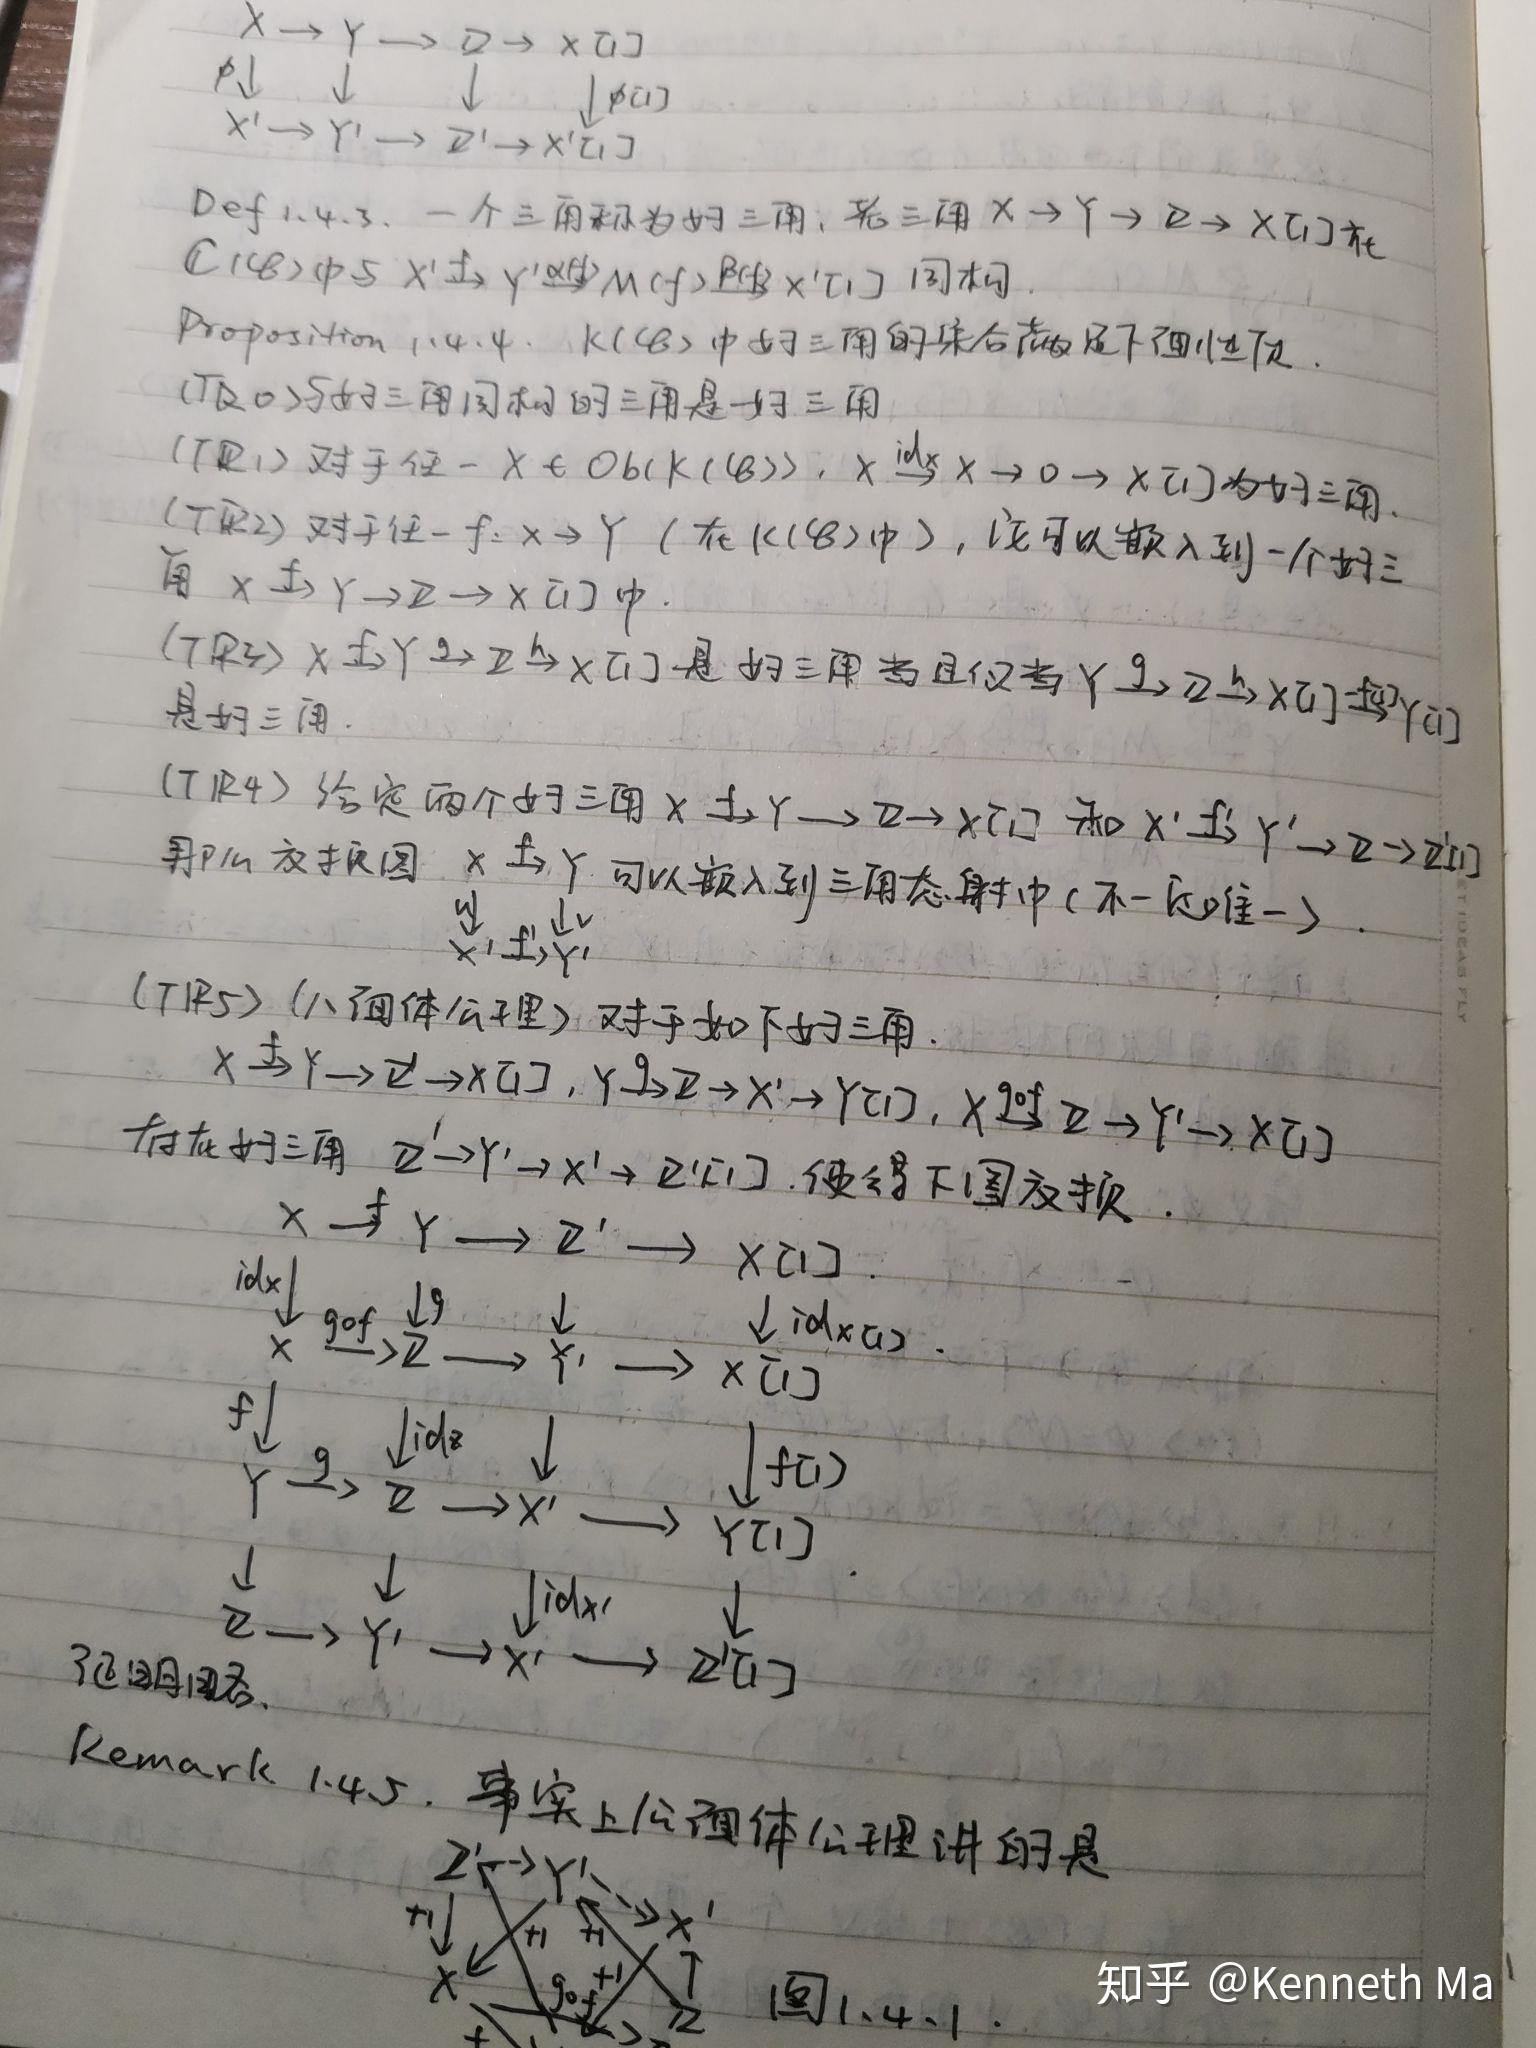 X → Y → Z → X[1]
φ↓ ↓ ↓ ↓φ[1]
X' → Y' → Z' → X'[1]
Def 1.4.3. 一个三角称为好三角,若三角 X → Y → Z → X[1] 在
C(𝒞)中与 X' f→ Y' α(f)→ M(f) β(f)→ X'[1] 同构.
Proposition 1.4.4. K(𝒞)中好三角的集合满足下面性质.
(TR0)与好三角同构的三角是好三角
(TR1) 对于任一 X ∈ Ob(K(𝒞)), X idx→ X → 0 → X[1]为好三角.
(TR2) 对于任一 f: X → Y (在K(𝒞)中), 它可以嵌入到一个好三
角 X f→ Y → Z → X[1] 中.
(TR3) X f→ Y g→ Z h→ X[1] 是好三角当且仅当 Y g→ Z h→ X[1] -f[1]→ Y[1]
是好三角.
(TR4) 给定两个好三角 X f→ Y → Z → X[1] 和 X' f'→ Y' → Z → Z'[1]
那么交换图 X f→ Y 可以嵌入到三角态射中(不一定唯一).
u↓ ↓v
X' f'→ Y'
(TR5) (八面体公理) 对于如下好三角.
X f→ Y → Z' → X[1], Y g→ Z → X' → Y[1], X gof→ Z → Y' → X[1]
存在好三角 Z' → Y' → X' → Z'[1]. 使得下图交换.
X f→ Y → Z' → X[1].
idx↓ ↓g ↓ ↓idx[1].
X gof→ Z → Y' → X[1]
f↓ ↓idz ↓ ↓f[1]
Y g→ Z → X' → Y[1]
↓ ↓ ↓idx' ↓
Z → Y' → X' → Z'[1]
证明略.
Remark 1.4.5. 事实上八面体公理讲的是
Z' → Y' → X'
+1 +1 +1
X gof +1 Z
f
图1.4.1.
知乎 @Kenneth Ma
ET IDEAS FLY